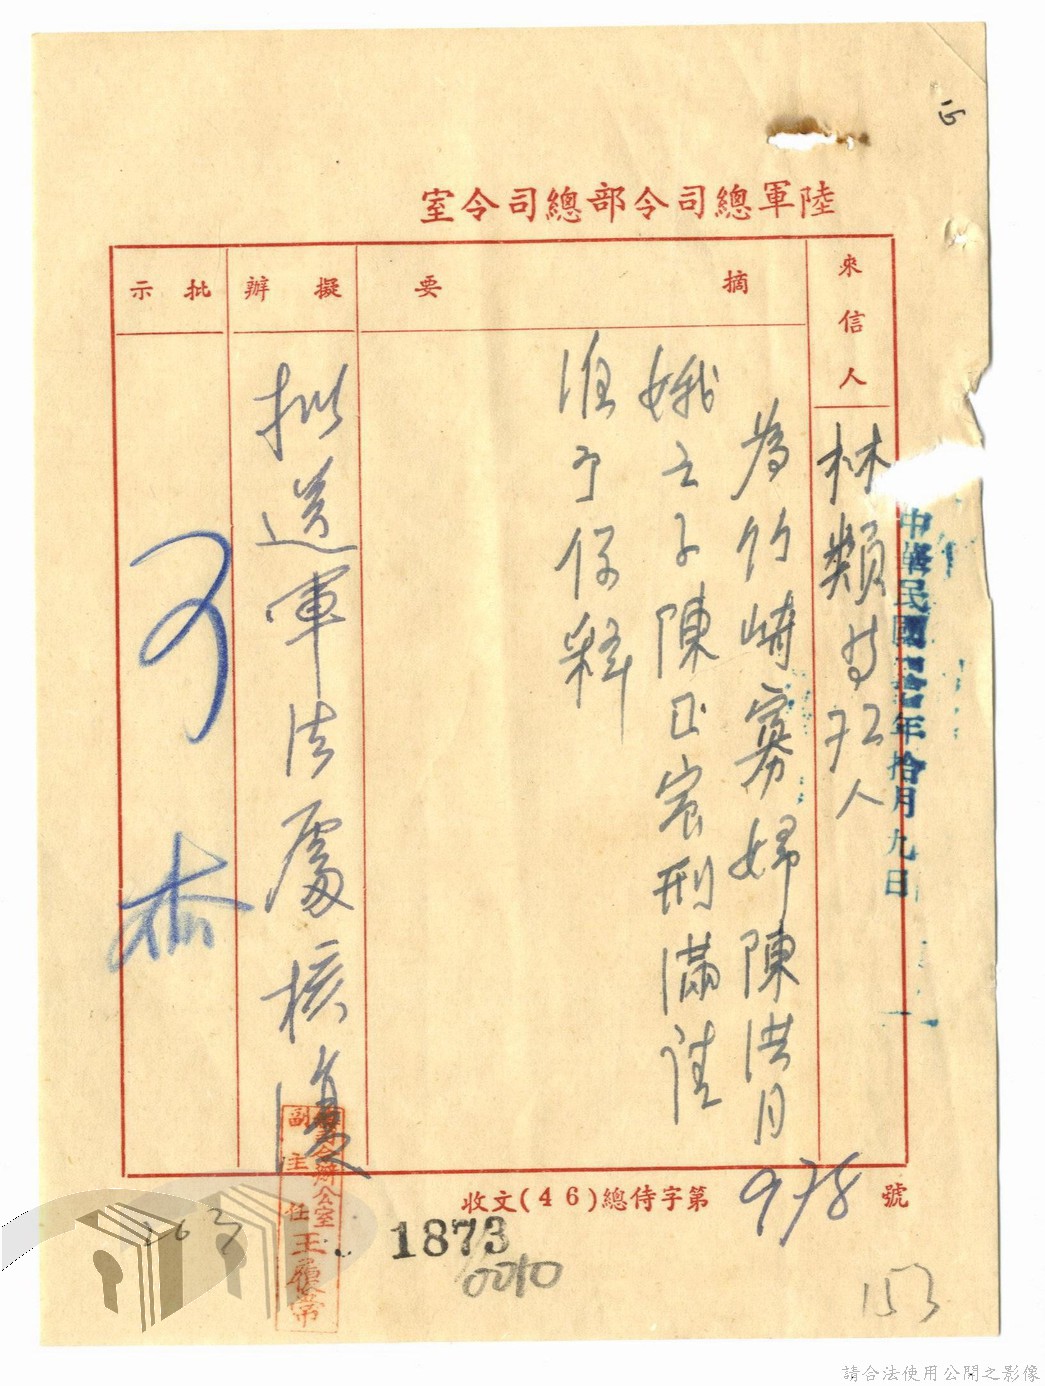 陸軍總司令部總司令室
來信人
林類等玖人
摘要
為竹崎寡婦陳洪月
娥之子陳正宸刑滿請
准予保釋
擬辦
擬送軍法處核復
批示
可
杰
中華民國
年拾月九日
收文(46)總侍字第978號
副主任王
1873
0010
263
153
請合法使用公開之影像